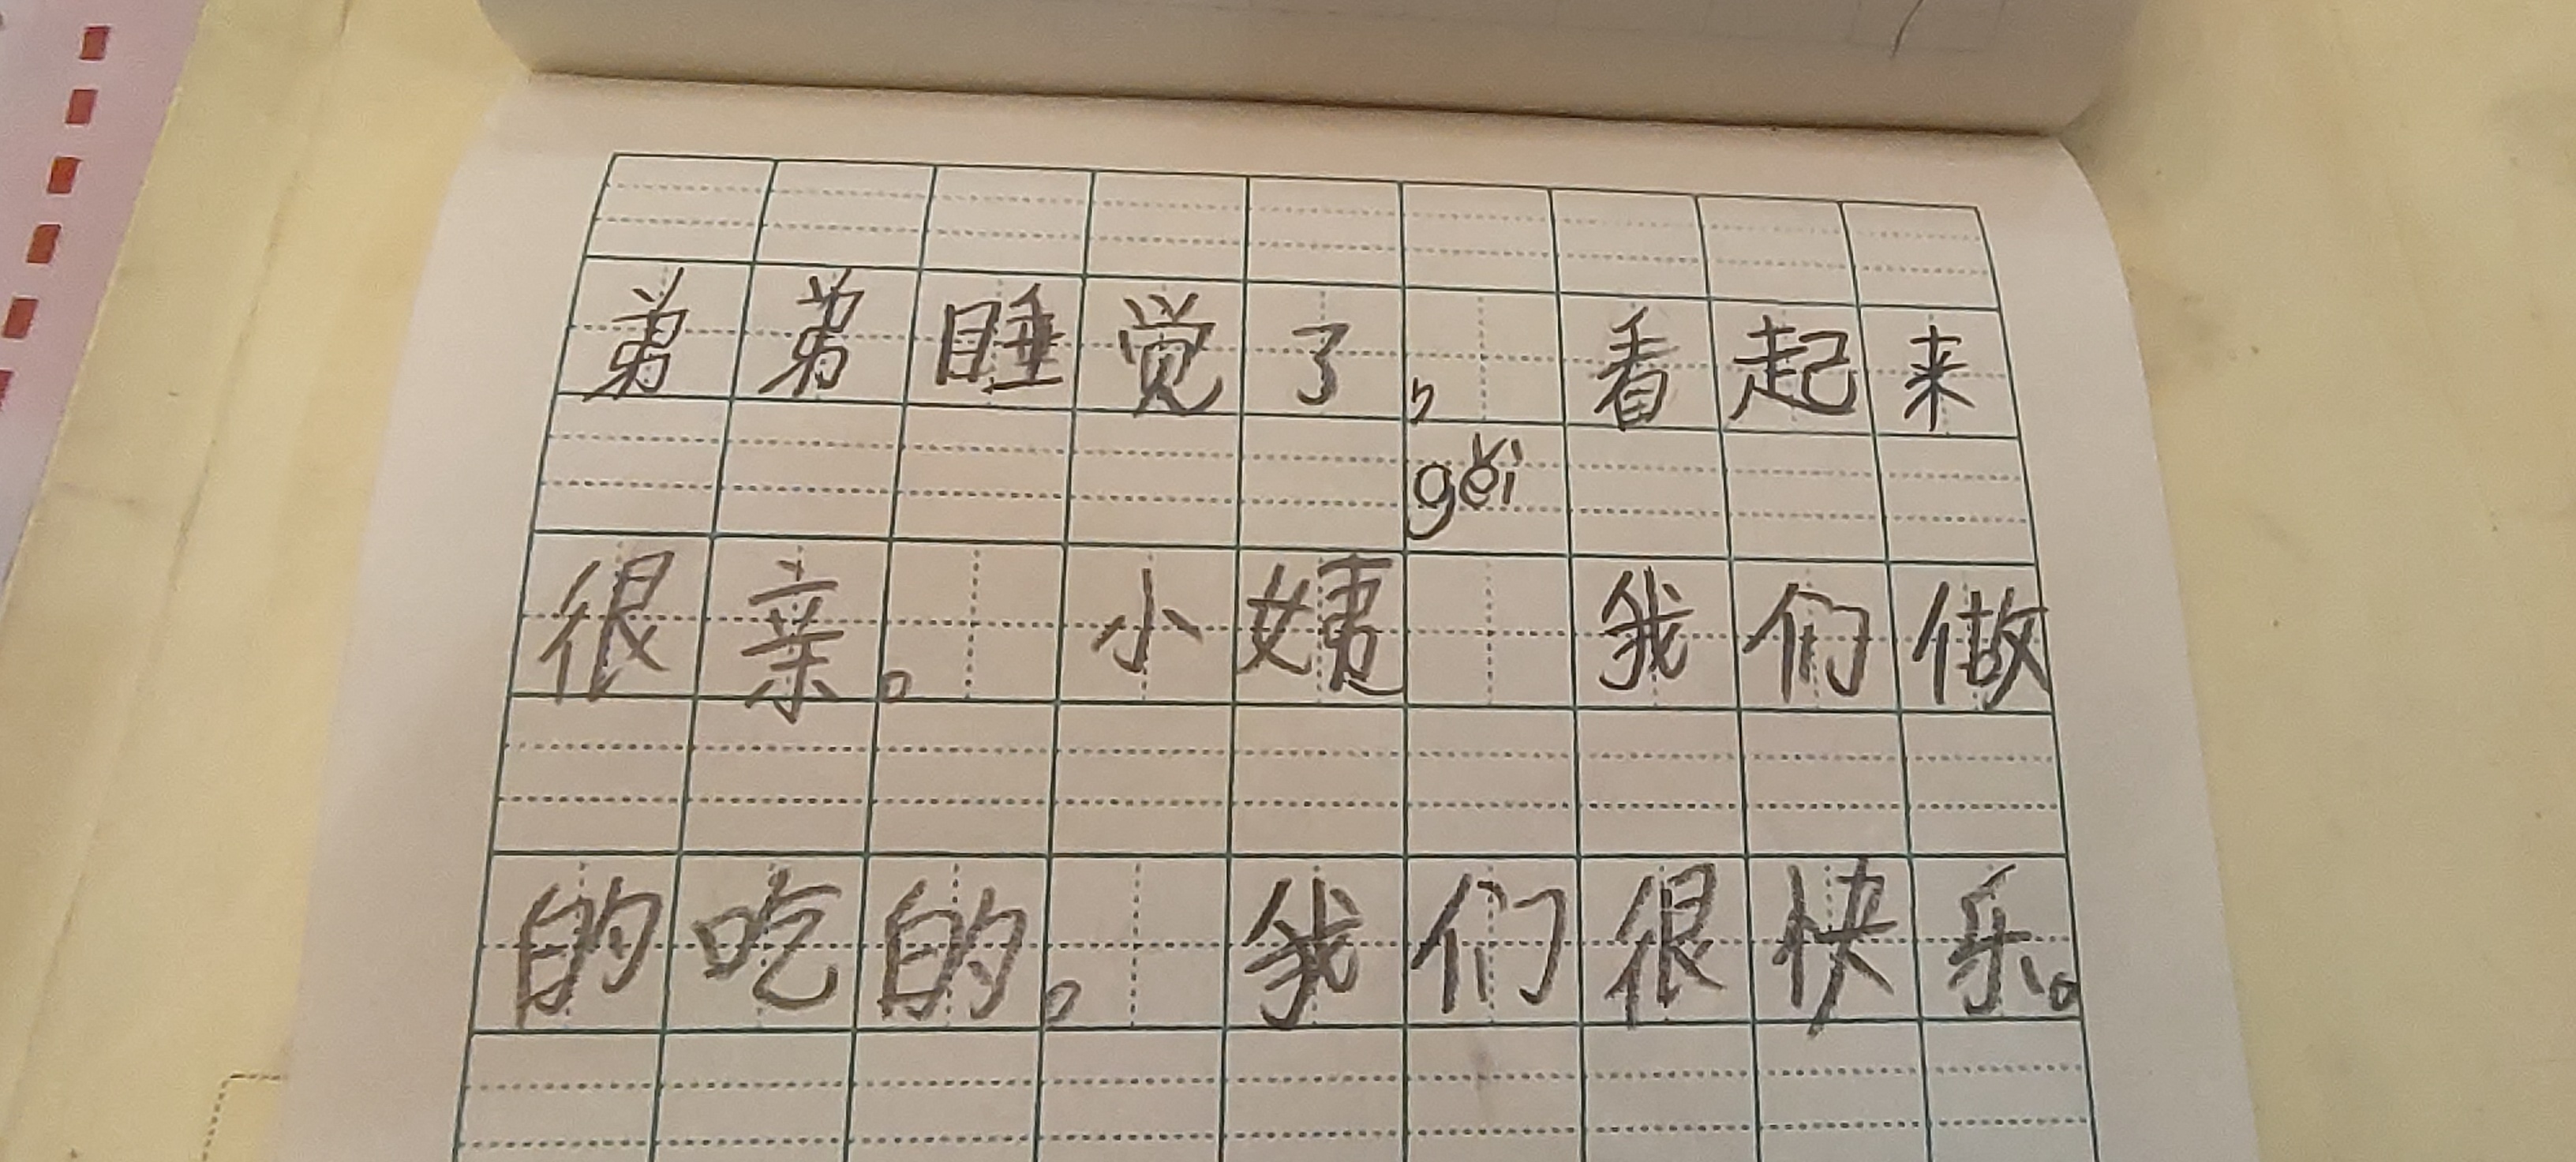 弟弟睡觉了，看起来
gěi
很亲。小姨 我们做
的吃的。我们很快乐。